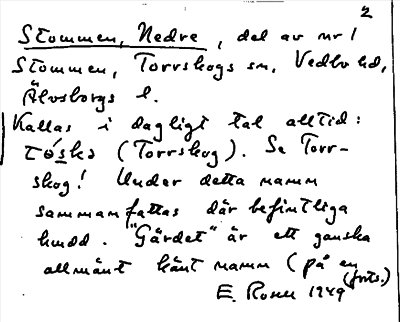 2
Stommen, Nedre, del av nr 1
Stommen, Torrskogs sn, Vedbo hd,
Älvsborgs l.
Kallas i dagligt tal alltid:
tɷ́skɷ (Torrskog). Se Torr-
skog! Under detta namn
sammanfattas där befintliga
hmdd. "Gärdet" är ett ganska
allmänt känt namn (på en
(forts.)
E. Rosen 1949